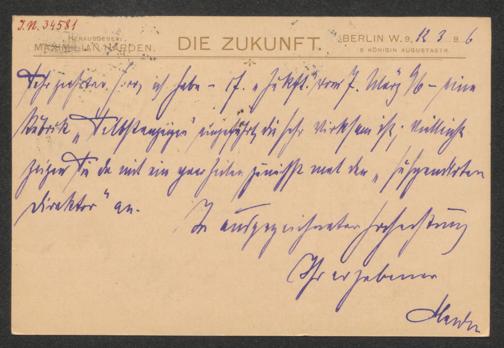 I.N. 34581
HERAUSGEBER:
MAXIMILIAN HARDEN.
DIE ZUKUNFT.
BERLIN W. 9, 12 3. 96
KÖNIGIN AUGUSTASTR.
Sehr geehrter Herr, ich habe – s. „Zukft.“ vom 7. März 96 – eine
Rubrik „Selbstanzeigen“ eingeführt, die sehr wirksam ist; vielleicht
zeigen Sie da mit ein paar Zeilen zunächst mal den „suspendirten
Direktor“ an.
In ausgezeichneter Hochachtung
Ihr ergebener
Harden